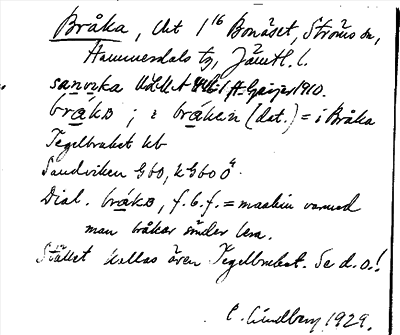 Bråka, lht 1¹⁶ Bonäset, Ströms sn,
Hammerdals tg, Jämtl. l.
sanvika
H. Geijer 1910.
bråka ; i bråken (dat.) = i Bråka
Tegelbruket kb
Sandviken G60, kG60 Ö
Dial. bråka, f. b. f. = maskin varmed
man bråkar sönder lera.
Stället kallas även Tegelbruket. Se d. o.!
C. Lindberg 1929.